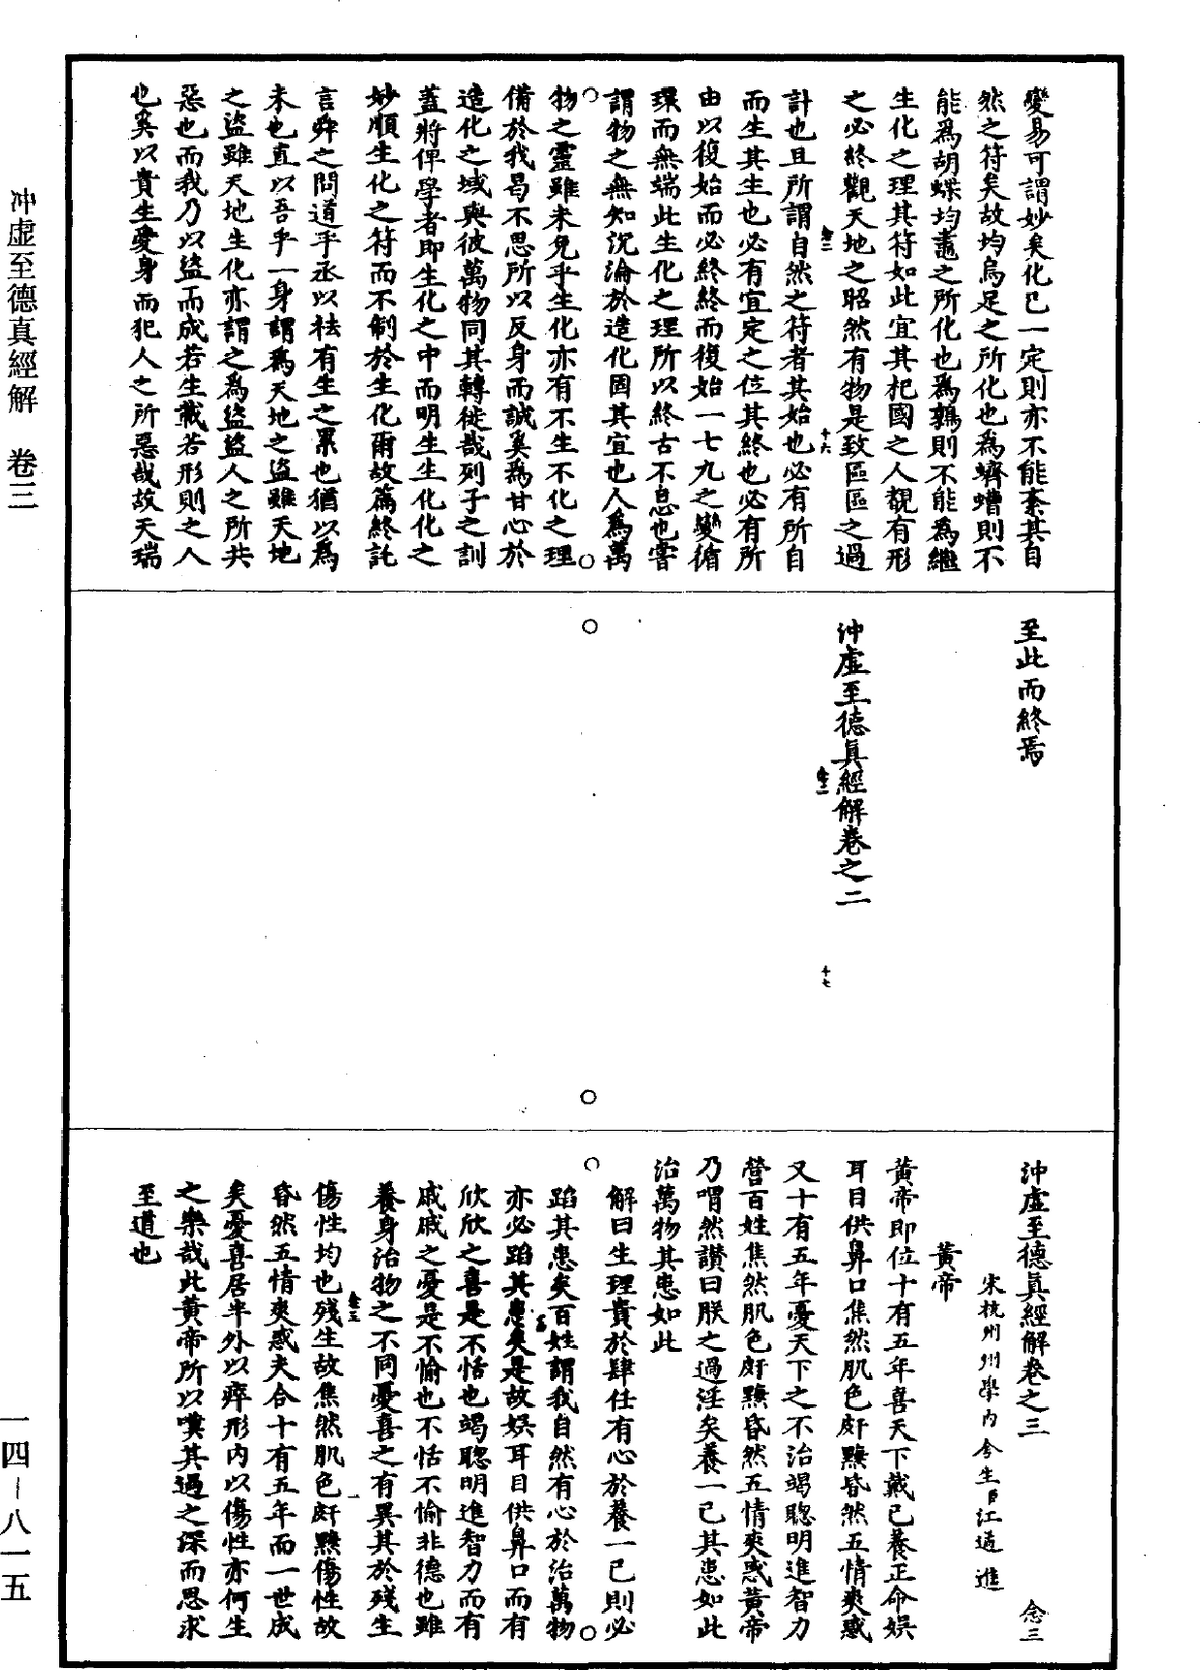 變易可謂妙矣化已一定則亦不能紊其自
然之符矣故均烏足之所化也為蠐螬則不
能為胡蝶均鼃之所化也為鶉則不能為繼
生化之理其符如此宜其杞國之人覩有形
之必終觀天地之昭然有物是致區區之過
計也且所謂自然之符者其始也必有所自
而生其生也必有宜定之位其終也必有所
由以復始而必終終而復始一七九之變循
環而無端此生化之理所以終古不息也嘗
謂物之無知沉淪於造化固其宜也人為萬
物之靈雖未免乎生化亦有不生不化之理
備於我曷不思所以反身而誠奚為甘心於
造化之域與彼萬物同其轉徙哉列子之訓
蓋將俾學者即生化之中而明生生化化之
妙順生化之符而不制於生化爾故篇終託
言舜之問道乎丞以祛有生之累也猶以為
未也直以吾乎一身謂為天地之盜雖天地
之盜雖天地生化亦謂之為盜盜人之所共
惡也而我乃以盜而成若生載若形則之人
也奚以貴生愛身而犯人之所惡哉故天瑞
至此而終焉
沖虛至德真經解卷之二
十六
十七
沖虛至德真經解卷之三 念三
宋杭州州學內舍生臣江遹進
黃帝
黃帝即位十有五年喜天下戴己養正命娛
耳目供鼻口焦然肌色皯黣昏然五情爽惑
又十有五年憂天下之不治竭聰明進智力
營百姓焦然肌色皯黣昏然五情爽惑黃帝
乃喟然讚曰朕之過淫矣養一己其患如此
治萬物其患如此
解曰生理貴於肆任有心於養一己則必
蹈其患矣百姓謂我自然有心於治萬物
亦必蹈其患矣是故娛耳目供鼻口而有
欣欣之喜是不恬也竭聰明進智力而有
戚戚之憂是不愉也不恬不愉非德也雖
養身治物之不同憂喜之有異其於殘生
傷性均也殘生故焦然肌色皯黣傷性故
昏然五情爽惑夫合十有五年而一世成
矣憂喜居半外以瘁形內以傷性亦何生
之樂哉此黃帝所以嘆其過之深而思求
至道也
沖虛至德真經解 卷三
一四—八一五